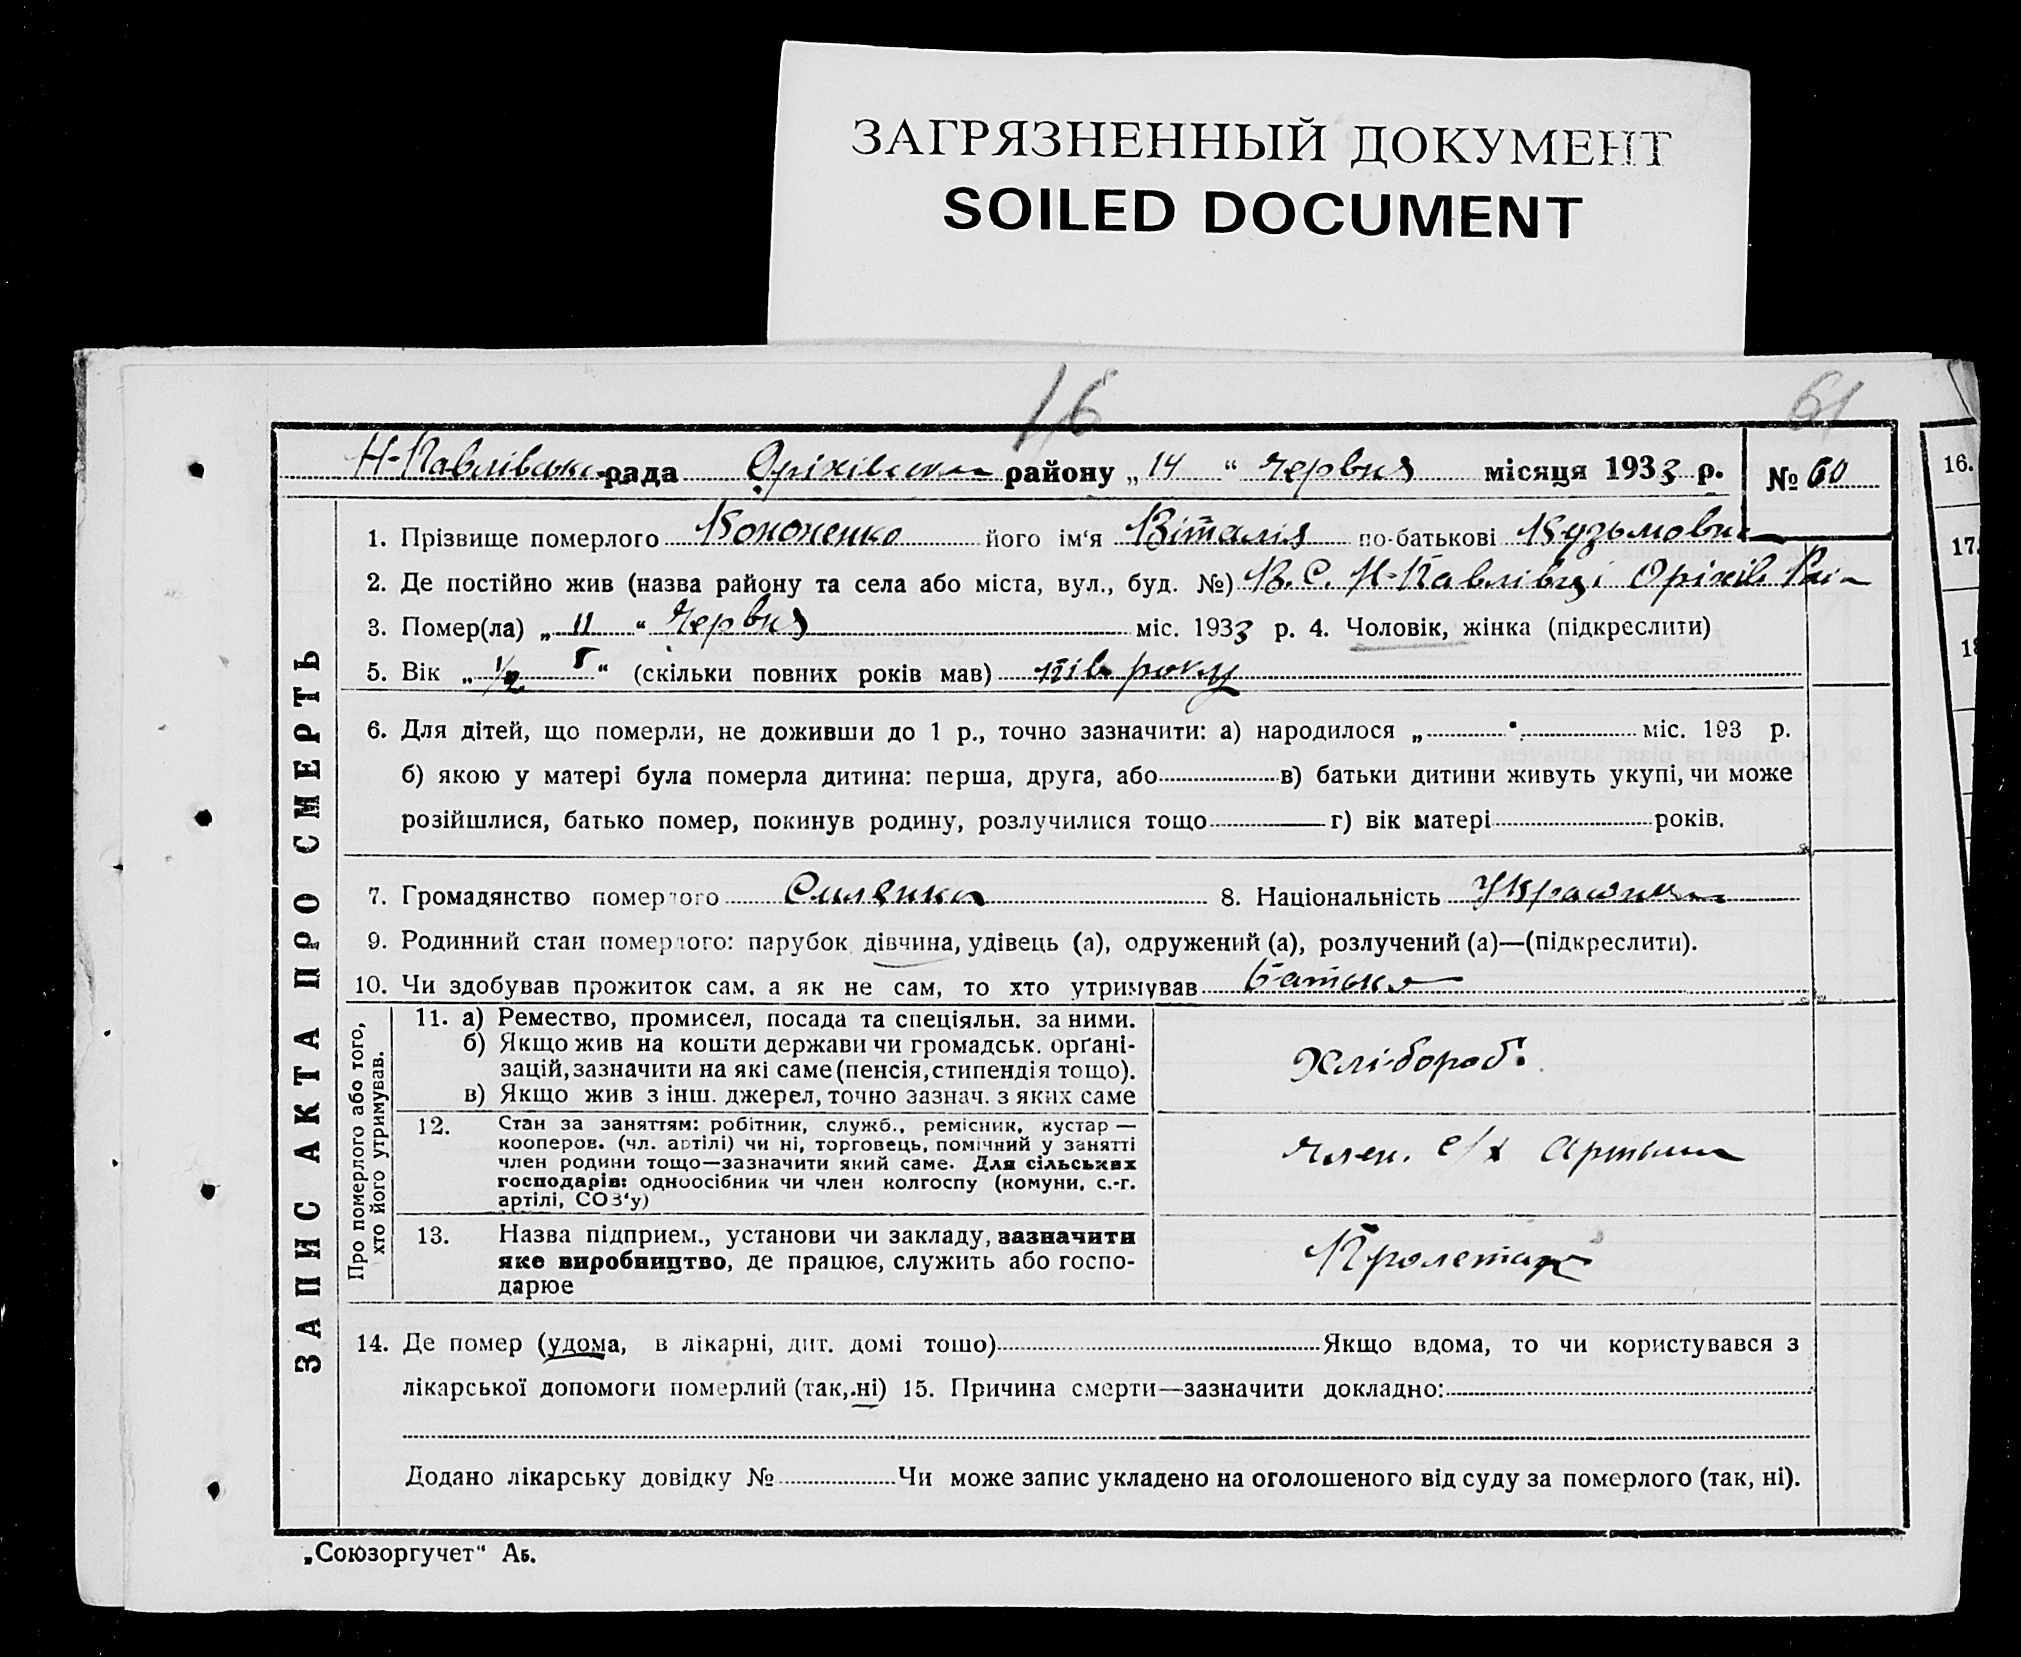 ЗАГРЯЗНЕННЫЙ ДОКУМЕНТ
SOILED DOCUMENT
16
61
Н-Павлівська рада Оріхівськ района „14“ червня місяця 1933 р. № 60
ЗАПИС АКТА ПРО СМЕРТЬ
1. Прізвище померлого Кононенко його ім'я Віталія по-батькові Кузьмович
2. Де постійно жив (назва району та села або міста, вул., буд. №) В. С. Н-Павлівці Оріхів Рай
3. Помер(ла) „11“ Червня міс. 1933 р. 4. Чоловік, жінка (підкреслити)
5. Вік „1/2 “ (скільки повних років мав) пів року
6. Для дітей, що померли, не доживши до 1 р., точно зазначити: а) народилося „ “ міс. 193 р.
б) якою у матері була померла дитина: перша, друга, або в) батьки дитини живуть укупі, чи може
розійшлися, батько помер, покинув родину, розлучилися тощо г) вік матері років.
7. Громадянство померлого 8. Національність Українка
9. Родинний стан померлого: парубок, дівчина, удівець (а), одружений (а), розлучений (а)—(підкреслити).
10. Чи здобував прожиток сам, а як не сам, то хто утримував Батько
Про померлого або того,
хто його утримував.
11. а) Ремество, промисел, посада та спеціяльн. за ними.
б) Якщо жив на кошти держави чи громадськ. орґані-
зацій, зазначити на які саме (пенсія, стипендія тощо).
в) Якщо жив з інш. джерел, точно зазнач. з яких саме
Хлібороб.
12. Стан за заняттям: робітник, служб., ремісник, кустар —
кооперов. (чл. артілі) чи ні, торговець, помічний у занятті
член родини тощо—зазначити який саме. Для сільських
господарів: одноосібник чи член колгоспу (комуни, с.-г.
артілі, СОЗ'у)
Член. с/х Артели
13. Назва підприєм., установи чи закладу, зазначити
яке виробництво, де працює, служить або госпо-
дарює
Пролетар
14. Де помер (удома, в лікарні, дит. домі тощо) Якщо вдома, то чи користувався з
лікарської допомоги померлий (так, ні) 15. Причина смерти—зазначити докладно:
Додано лікарську довідку № Чи може запис укладено на оголошеного від суду за померлого (так, ні).
„Союзоргучет“ Аб.
16.
17.
18